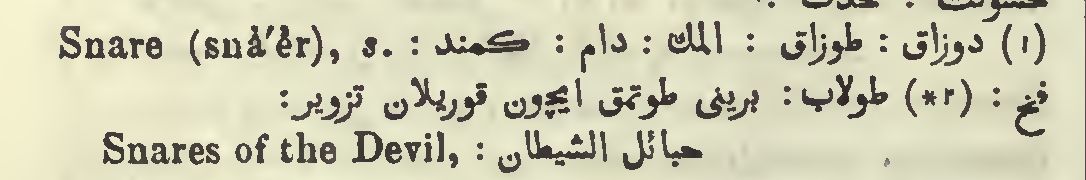 Snare (snā′ĕr), s. (١) دوزاق : طوزاق : المك : دام : كمند :
فخ : (٢*) طولاب : برينى طوتمق ايچون قوريلان تزوير :
Snares of the Devil, حبائل الشيطان :